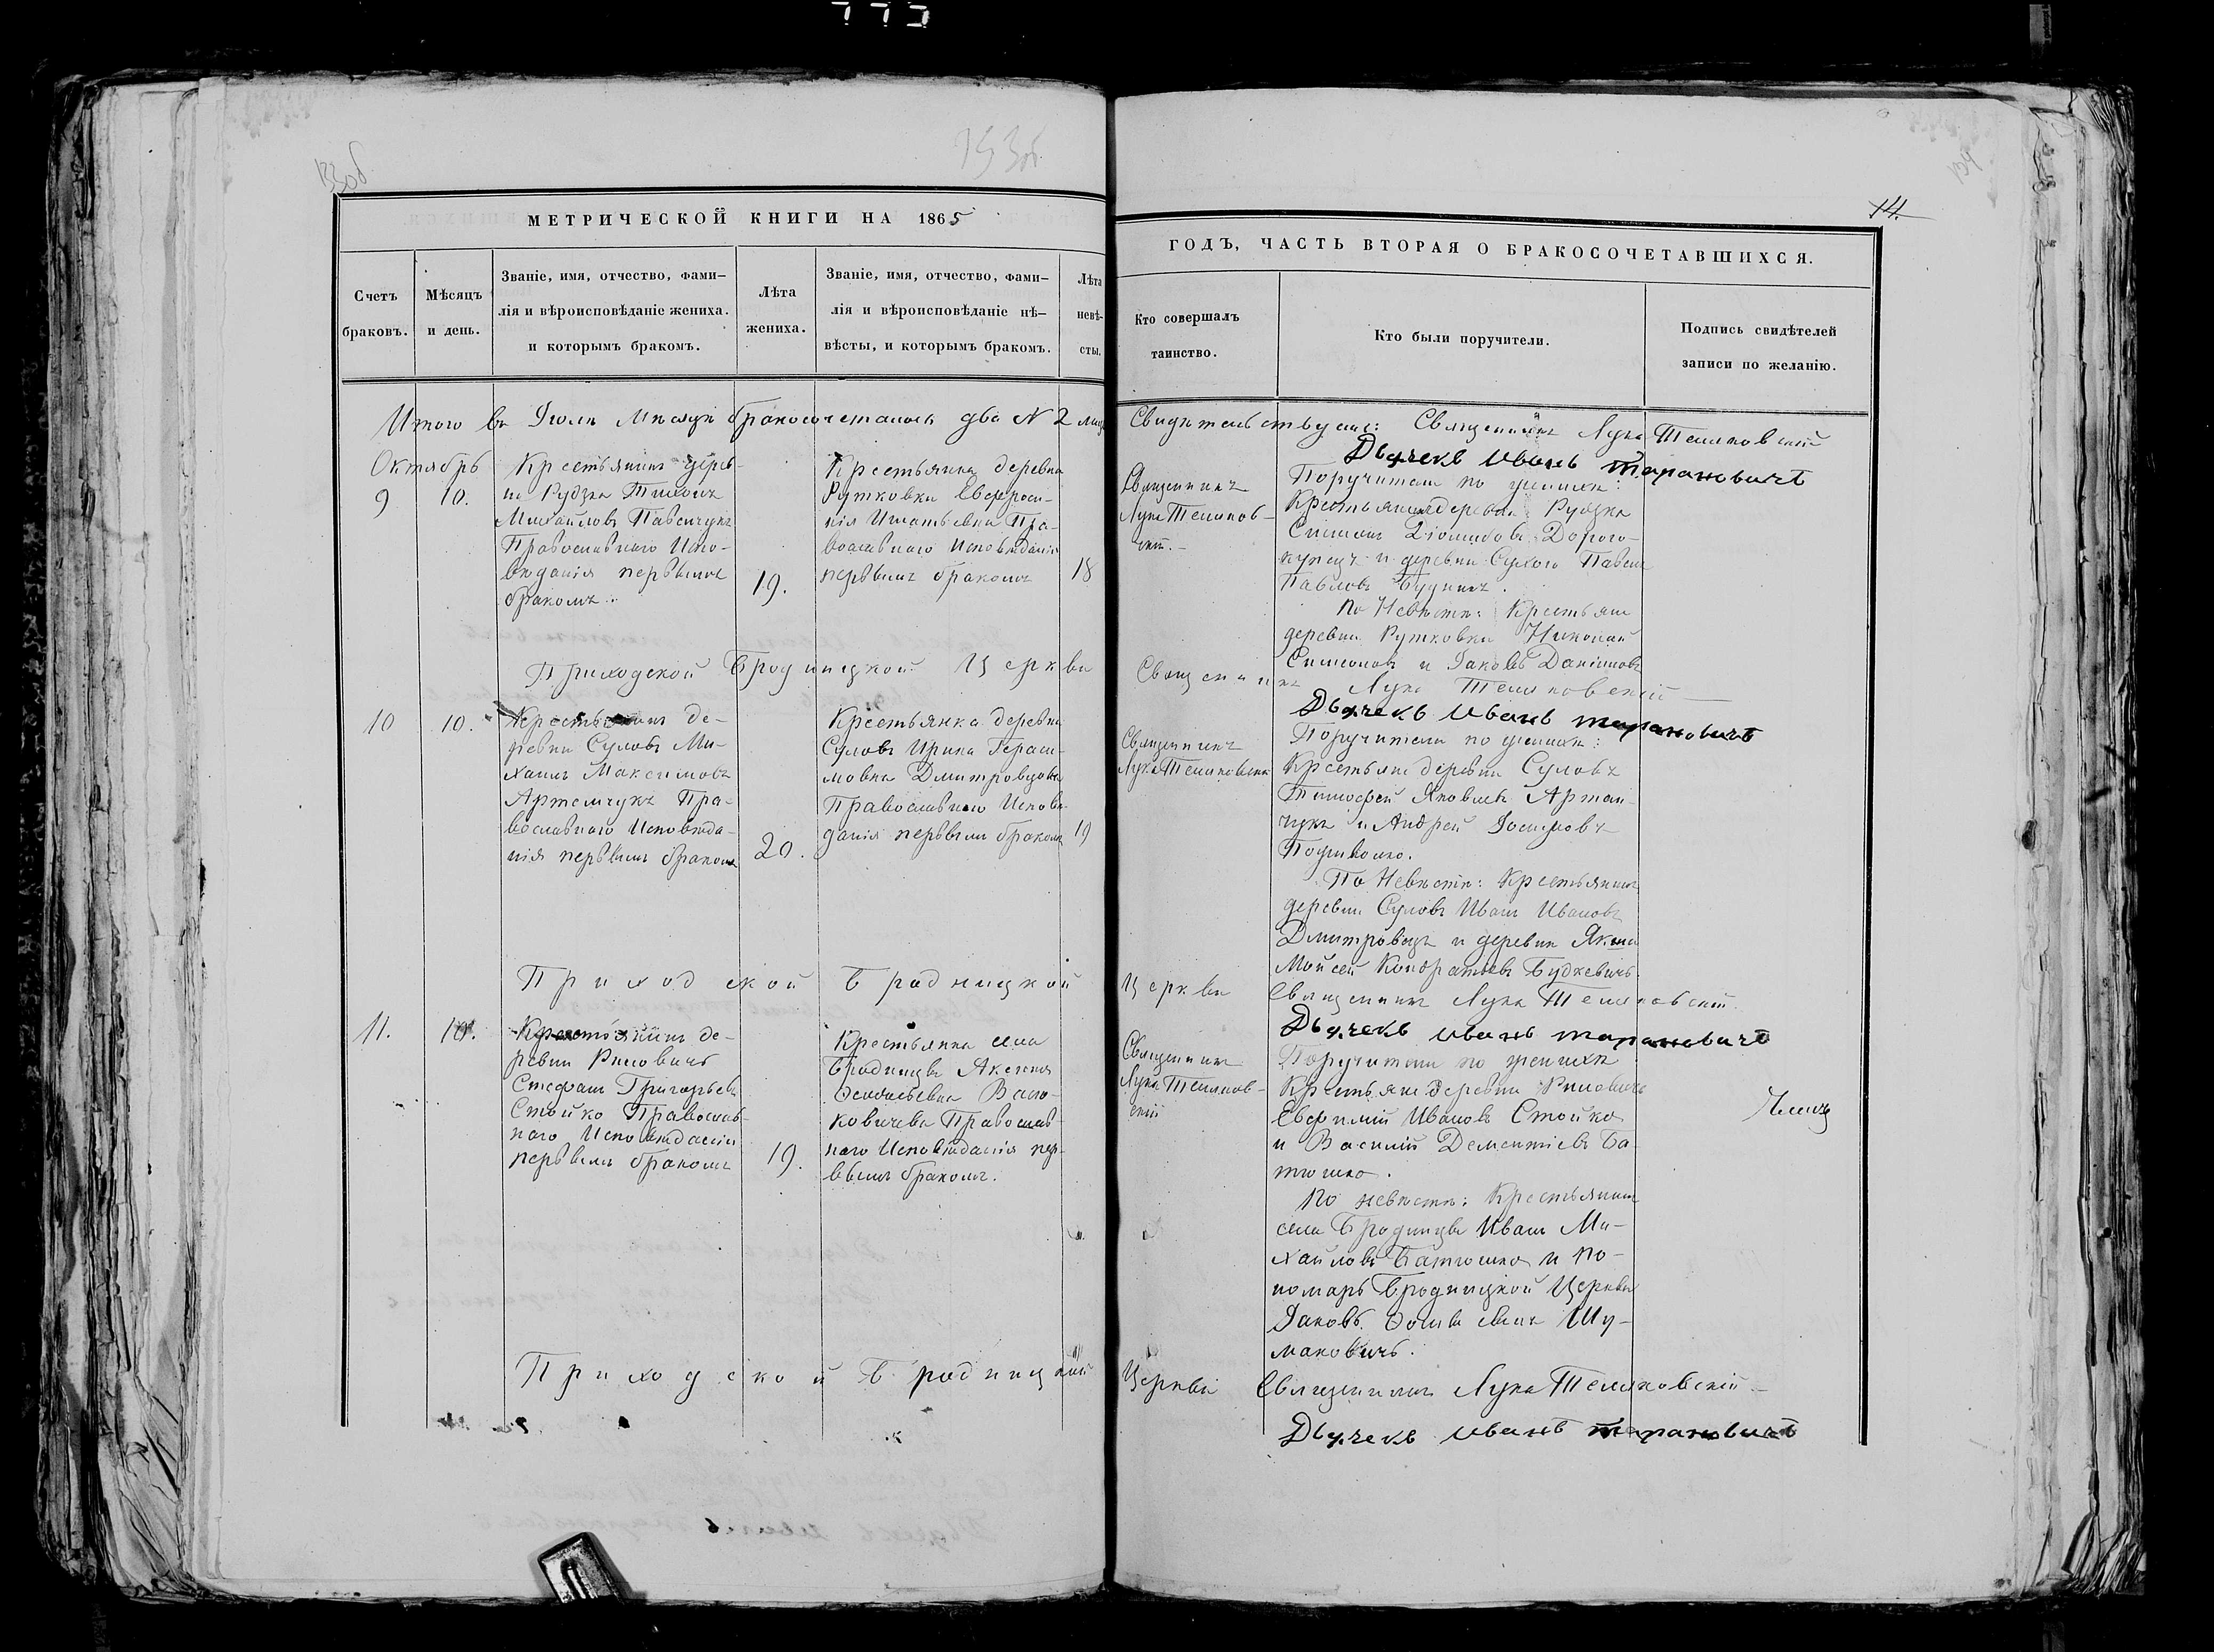 153об
14.
МЕТРИЧЕСКОЙ КНИГИ НА 1865
ГОДЪ, ЧАСТЬ ВТОРАЯ О БРАКОСОЧЕТАВШИХСЯ.
Счетъ
браковъ.
Мѣсяцъ
и день.
Званіе, имя, отчество, фами-
лія и вѣроисповѣданіе жениха.
и которымъ бракомъ.
Лѣта
жениха.
Званіе, имя, отчество, фами-
лія и вѣроисповѣданіе нѣ-
вѣсты, и которымъ бракомъ.
Лѣта
невѣ-
сты.
Кто совершалъ
таинство.
Кто были поручители.
Подпись свидѣтелей
записи по желанію.
Итого въ Іюлѣ Мѣсяцѣ бракосочеталось два № 2
Священникъ Лука Теляковскій
Дьячекъ Иванъ тарановичъ
Октябрь
9
10.
Крестьянинъ дерев-
ни Рудка Тихонъ
Михайловъ
Православнаго Испо-
вѣданія первымъ
бракомъ.
19.
Крестьянка деревни
Рутковки Евфроси-
нія Игнатьевна Пра-
вославнаго Исповѣданія
первымъ бракомъ
18
Священникъ
Лука Теляков-
скій.-
Поручители по женихѣ:
Крестьянинъ деревни Рудка
Симонъ Дорого-
купецъ и деревни Сухого
Павловъ Будникъ.
По Невѣстѣ: Крестьяне
деревни Рутковки Николай
Симоновъ и Іаковъ Даніиловъ
Приходской Бродницкой Церкви
Священникъ Лука Теляковскій
Дьячекъ Иванъ тарановичъ
10
10.
Крестьянинъ де-
ревни Суловъ Ми-
хаилъ Максимовъ
Артемчукъ Пра-
вославнаго Исповѣда-
нія первымъ бракомъ
20.
Крестьянка деревни
Суловъ Ирина Гераси-
мовна Дмитровцова
Православнаго Исповѣ-
данія первымъ бракомъ
19
Священникъ
Лука Теляковскій
Поручители по женихѣ:
Крестьяне деревни Суловъ
Тимофей Яковлевъ Артем-
чукъ и Андрей Іосифовъ
По Невѣстѣ: Крестьянинъ
деревни Суловъ Иванъ Ивановъ
Дмитровецъ и деревни
Моисей Кондратьевъ Будкевичъ.
Приходской Бродницкой
Церкви Священникъ Лука Теляковскій.
Дьячекъ иванъ тарановичъ
11.
10.
Крестьянинъ де-
ревни Риловичъ
Стефанъ Григорьевъ
Стойко Православ-
наго Исповѣданія
первымъ бракомъ
19.
Крестьянка села
Бродницы Аксенія
Православ-
наго Исповѣданія пер-
вымъ бракомъ.
Священникъ
Лука Теляков-
скій
Поручители по женихѣ
Крестьяне деревни Риловичъ
Евфимій Ивановъ Стойко
и Василій Дементіевъ Ба-
тюшко.
По невѣстѣ: Крестьянинъ
села Бродницы Иванъ Ми-
хайловъ Батюшко и по-
номарь Бродницкой Церкви
Іаковъ Шу-
маковичъ.
Приходской Бродницкой
Церкви Священникъ Лука Теляковскій
Дьячекъ иванъ тарановичъ